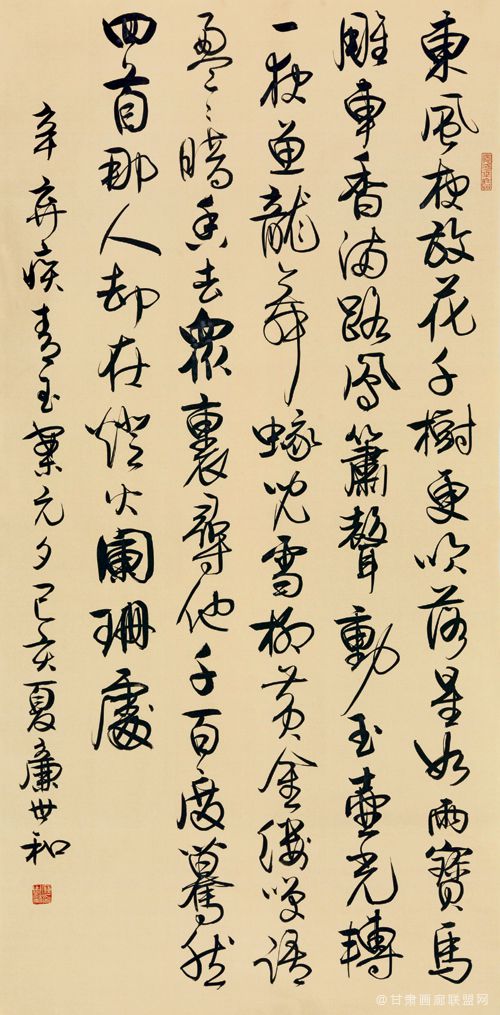 東風夜放花千樹更吹落星如雨寶馬
雕車香滿路鳳簫聲動玉壺光轉
一夜魚龍舞蛾兒雪柳黃金縷笑語
盈〻暗香去衆裏尋他千百度驀然
回首那人却在燈火闌珊處
辛弃疾青玉案元夕己亥夏廉世和
@甘肃画廊联盟网